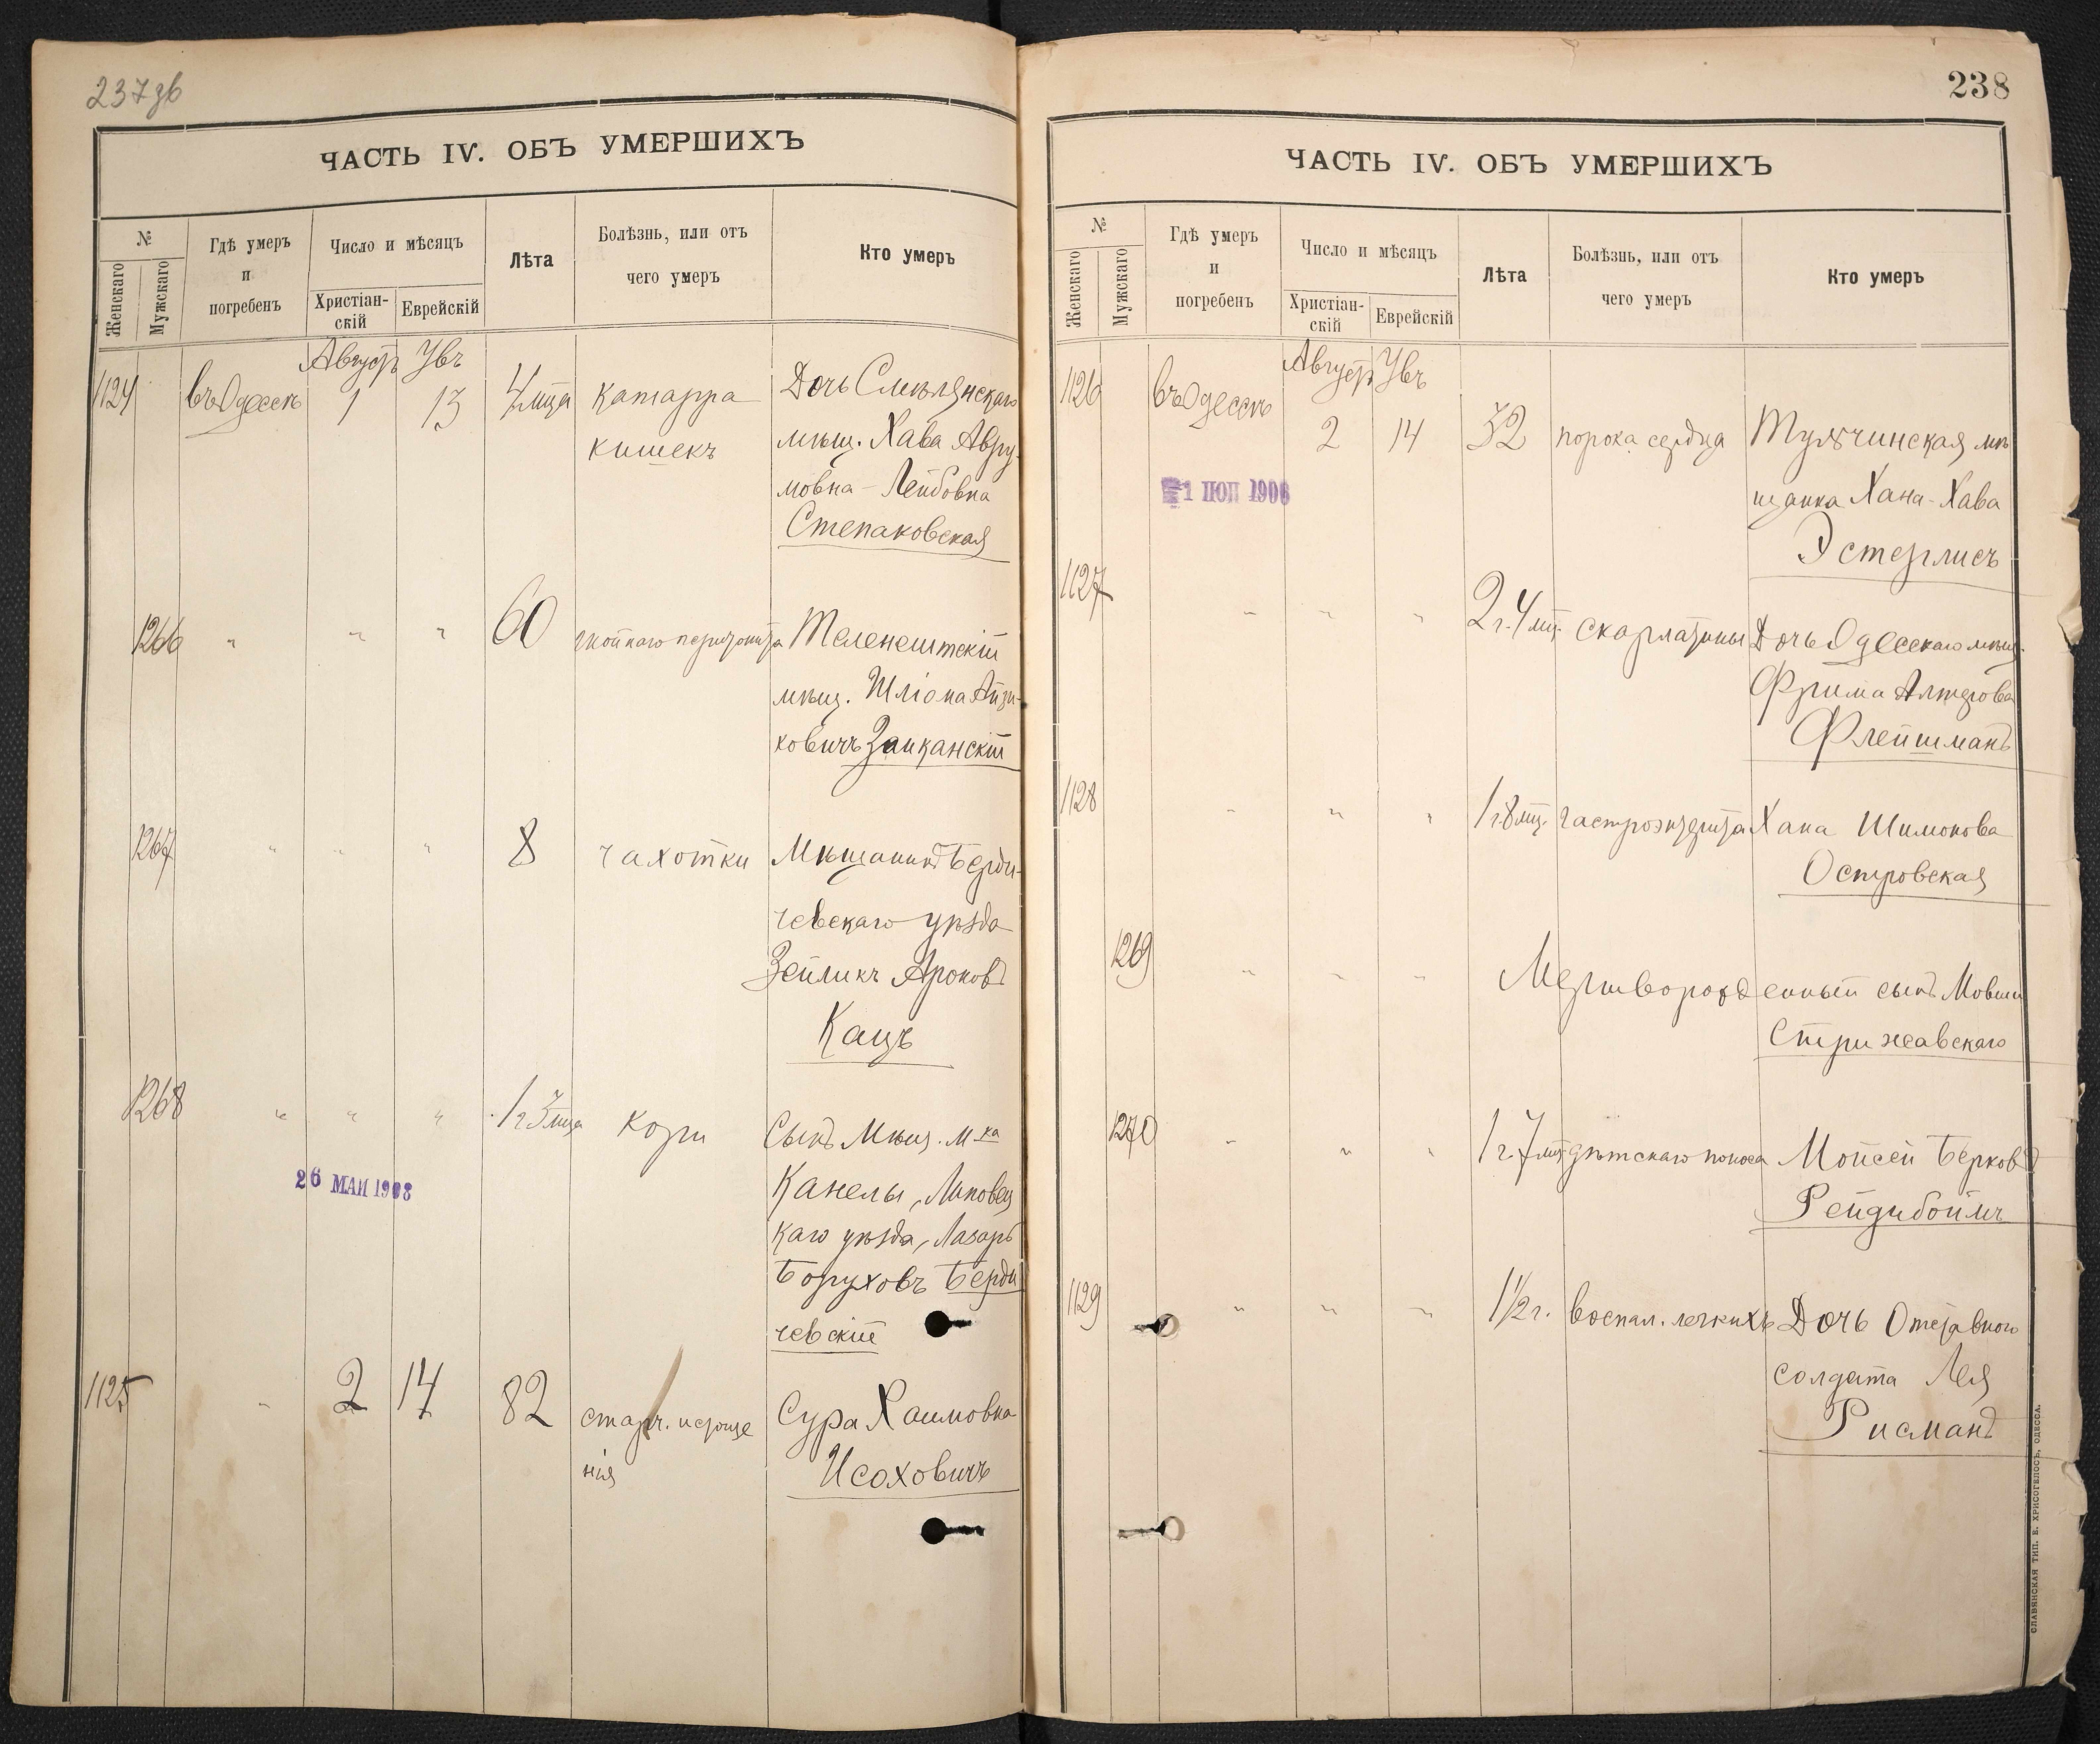 237зв
ЧАСТЬ IV. ОБЪ УМЕРШИХЪ
№
Женскаго
Мужскаго
Гдѣ умеръ
и
погребенъ
Число и мѣсяцъ
Христіан-
скій
Еврейскій
Лѣта
Болѣзнь, или отъ
чего умеръ
Кто умеръ
Август Увъ
1124 въ Одессѣ 1 13 4 мца катарра Дочь Смѣлянскаго
кишекъ мѣщ. Хава Авру-
мовна-Лейбовна
Степаковская
1266 " " " 60 гнойнаго перитонита Теленештскій
мѣщ. Шліома Айзи-
ковичъ Заиканскій
1267 " " " 8 чахотки Мѣщанинъ Берди-
чевскаго уѣзда
Зейликъ Ароновъ
Кацъ
1268 " " " 1 г 3 мца кори Сынъ Мѣщ. м-ка
26 МАЙ 1908
Канелы, Липовец
каго уѣзда, Лазарь
Боруховъ Берди
чевскій
1125 " 2 14 82 старч. истоще Сура Хаимовна
нія Исоховичъ
238
ЧАСТЬ IV. ОБЪ УМЕРШИХЪ
№
Женскаго
Мужскаго
Гдѣ умеръ
и
погребенъ
Число и мѣсяцъ
Христіан-
скій
Еврейскій
Лѣта
Болѣзнь, или отъ
чего умеръ
Кто умеръ
Август Увъ
1126 въ Одессѣ 2 14 32 порока сердца Тульчинская мѣ
1906
щанка Хана-Хава
Эстерлисъ
1127 " " " 2 г. 4 мц. скарлатины Дочь Одесскаго мѣщ.
Фрима Алтерова
Флейшманъ
1128 " " " 1 г. 8 мц. гастроэнтерита Хана Шимонова
Островская
1269 " " " Мертворожденный сынъ Мовши
Стрижавскаго
1270 " " " 1 г. 7 мц. дѣтскаго поноса Мойсей Берковъ
Рейдибоймъ
1129 " " " 1 1/2 г. воспал. легкихъ Дочь Отставного
солдата Лея
Рисманъ
СЛАВЯНСКАЯ ТИП. Е. ХРИСОГЕЛОСЪ, ОДЕССА.